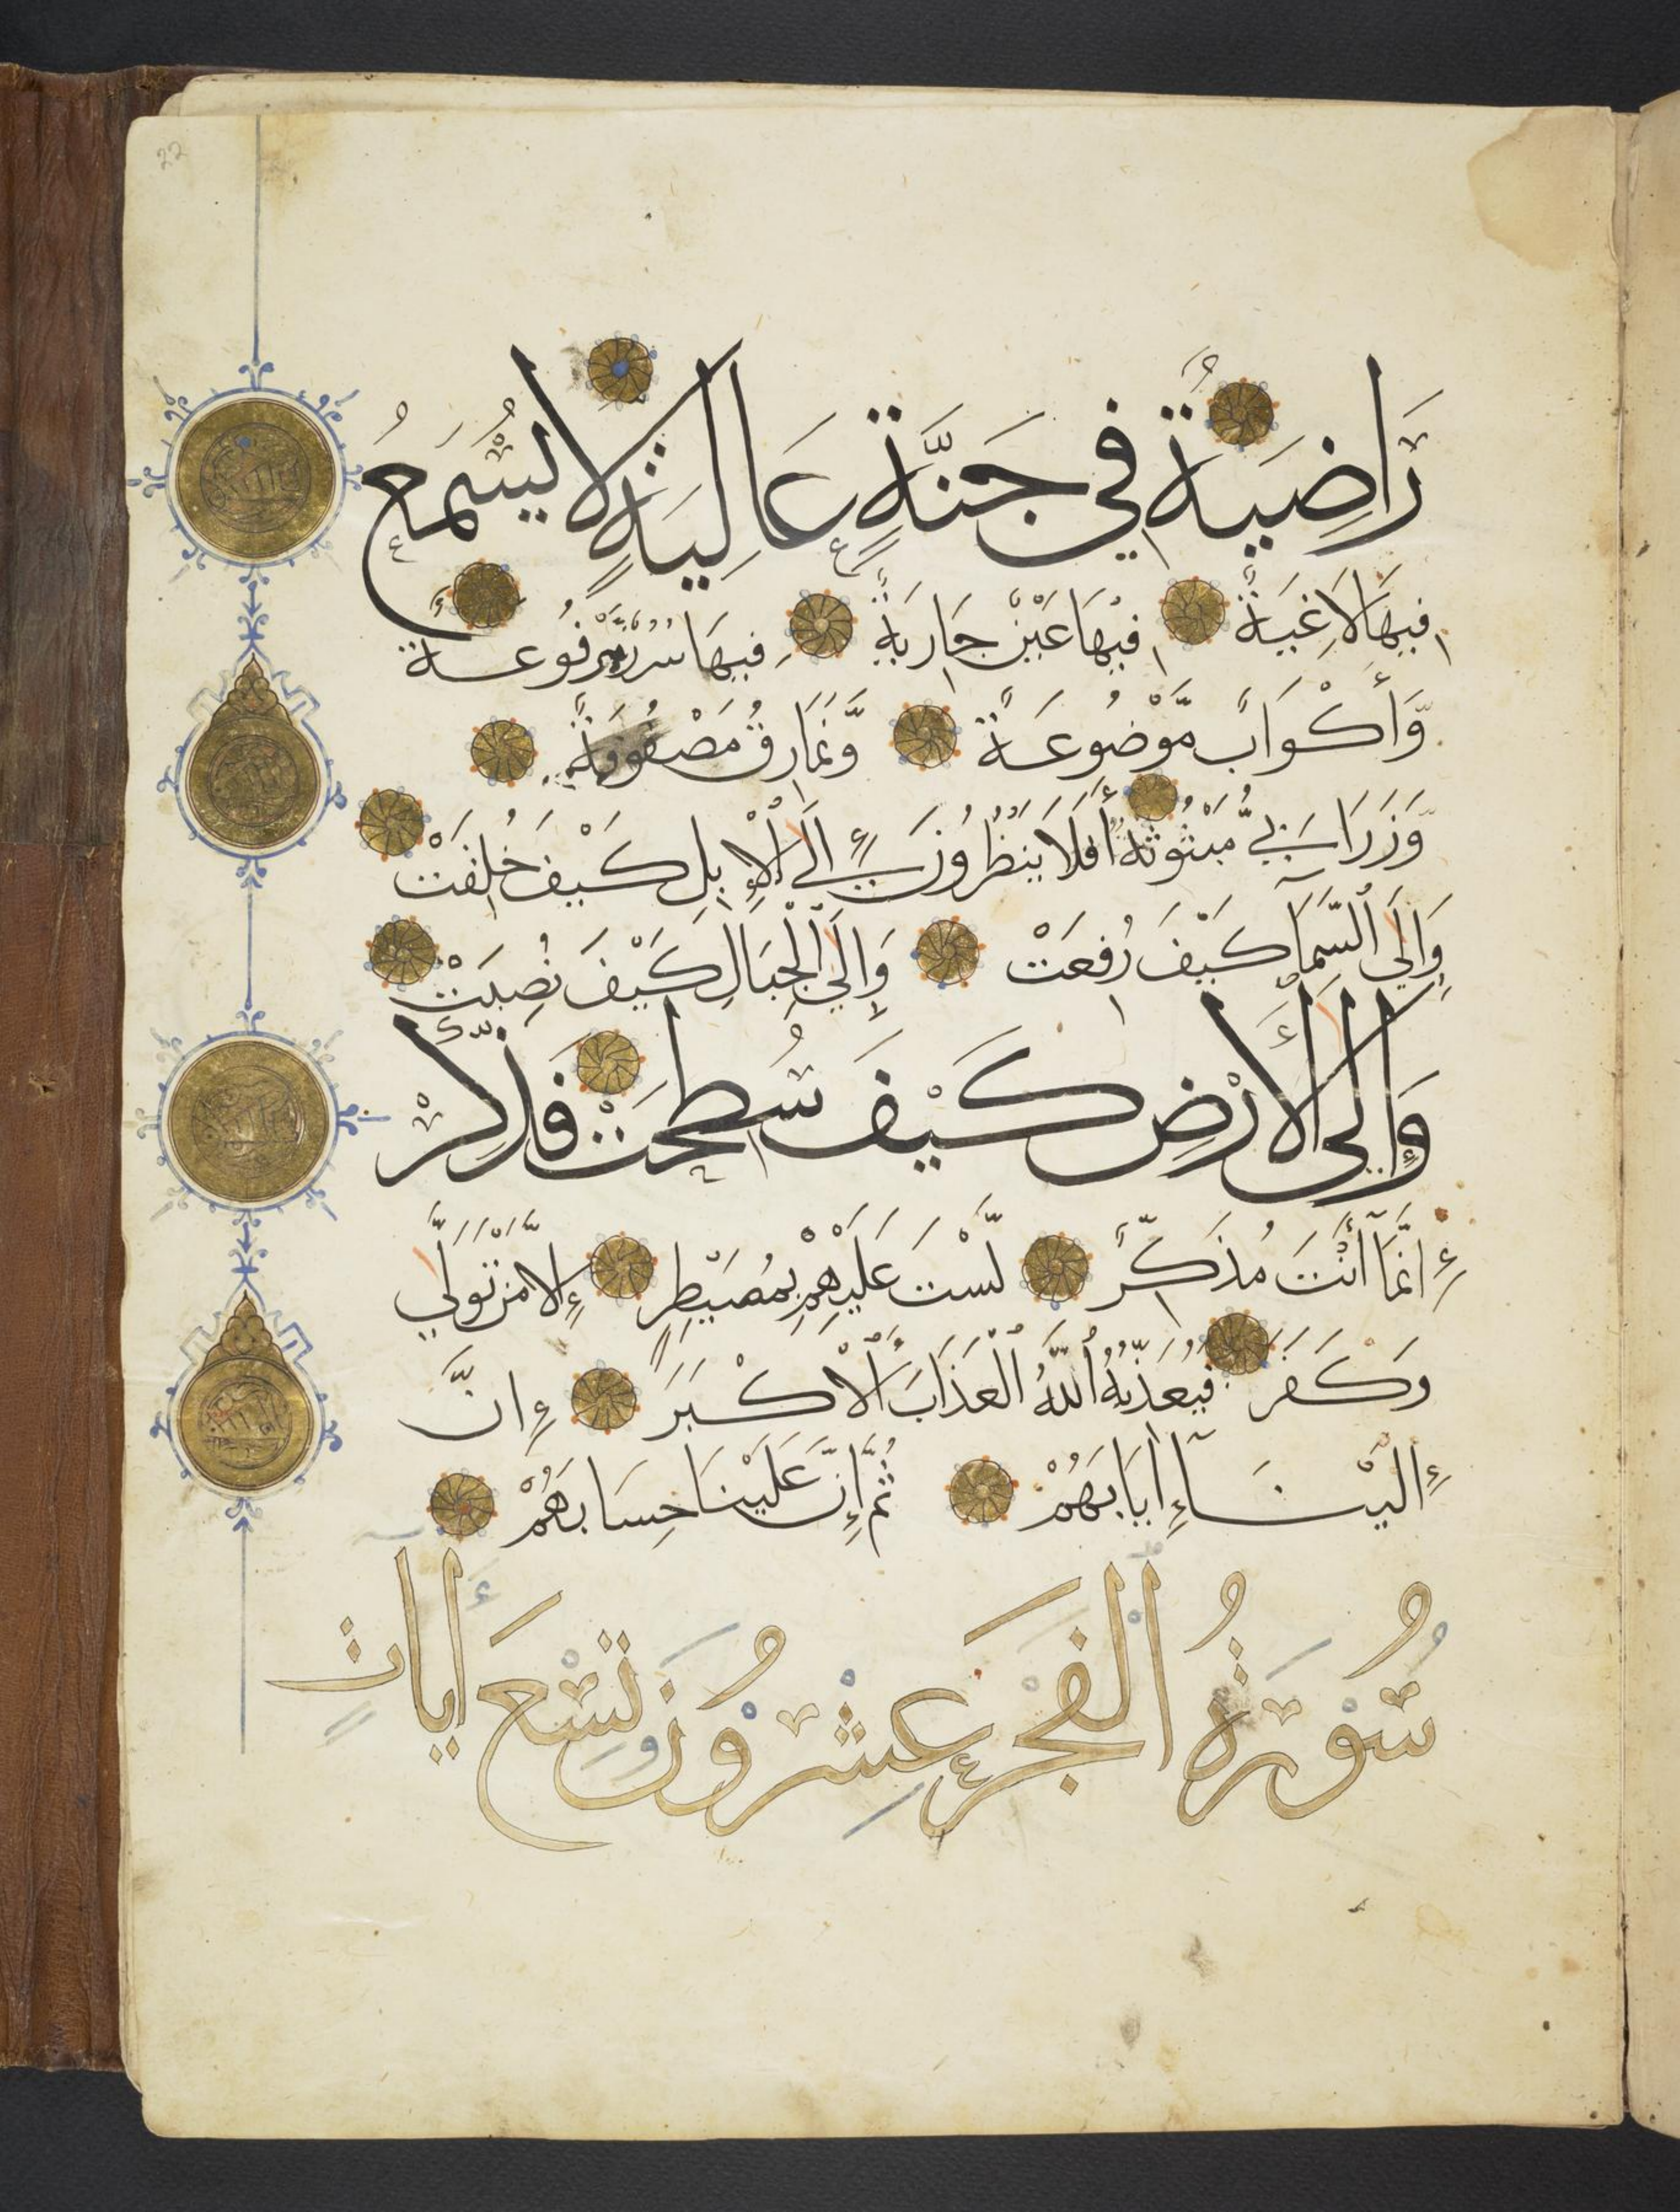 رَّاضِيَةٌ فِي جَنَّةٍ عَالِيَةٍ لَا يُسْمَعُ
فِيهَا لَاغِيَةٌ فِيهَا عَيْنٌ جَارِيَةٌ فِيهَا سُرُرٌ مَّرْفُوعَةٌ
وَّأَكْوَابٌ مَّوْضُوعَةٌ وَّنَمَارِقُ مَصْفُوفَةٌ
وَّزَرَابِيُّ مَبْثُوثَةٌ أَفَلَا يَنْظُرُونَ إِلَى ٱلْإِبِلِ كَيْفَ خُلِقَتْ
وَإِلَى ٱلسَّمَآ كَيْفَ رُفِعَتْ وَإِلَى ٱلْجِبَالِ كَيْفَ نُصِبَتْ
وَإِلَى ٱلْأَرْضِ كَيْفَ سُطِحَتْ فَذَكِّرْ
إِنَّمَآ أَنْتَ مُذَكِّرٌ لَّسْتَ عَلَيْهِمْ بِمُصَيْطِرٍ إِلَّا مَنْ تَوَلَّى
وَكَفَرَ فَيُعَذِّبُهُ ٱللَّهُ ٱلْعَذَابَ ٱلْأَكْبَرَ إِنَّ
إِلَيْنَآ إِيَابَهُمْ ثُمَّ إِنَّ عَلَيْنَا حِسَابَهُمْ
سُوْرَةُ ٱلْفَجْرِ عِشْرُوْنَ وَتِسْعَ أٰيَاتٍ
22